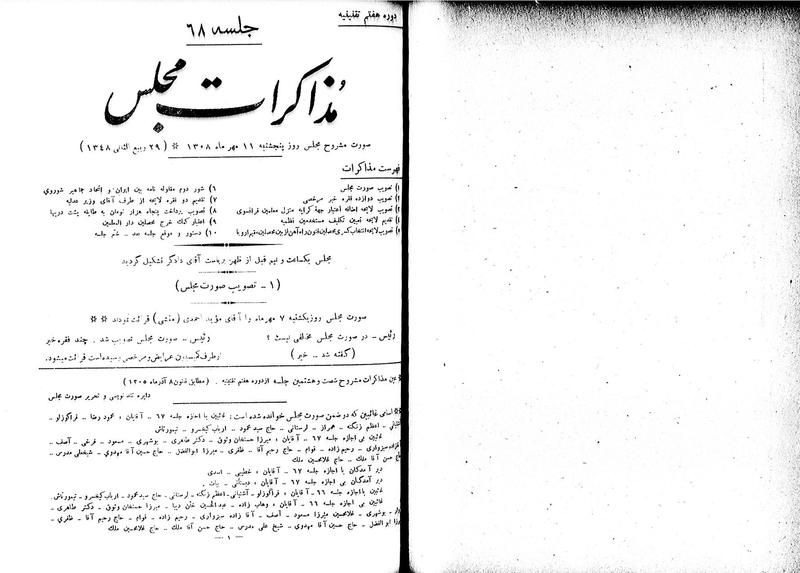 دوره هفتم تقنینیه
جلسه ۶۸
مذاکرات مجلس
صورت مشروح مجلس روز پنجشنبه ۱۱ مهر ماه ۱۳۰۸ * (۲۹ ربیع الثانی ۱۳۴۸)
فهرست مذاکرات
۱) تصویب صورت مجلس
۲) تصویب دوازده فقره خبر مرخصی
۳) تصویب لایحه اضافه اعتبار جهة کرایه منزل معلمین فرانسوی
۴) تقدیم لایحه تعیین تکلیف مستخدمین نظمیه
۵) تصویب لایحه انتخاب کسری محصلین فنون راه آهن از بین محصلین مقیم اروپا
۶) شور دوم مقاوله نامه بین ایران و اتحاد جماهیر شوروی
۷) تقدیم دو فقره لایحه از طرف آقای وزیر عدلیه
۸) تصویب پرداخت پنجاه هزار تومان به طایفه پشت دریها
۹) اعتبار کمک خرج محصلین دار المعلمین
۱۰) دستور و موقع جلسه بعد - ختم جلسه
مجلس یکساعت و نیم قبل از ظهر بریاست آقای دادگر تشکیل گردید
(۱ - تصویب صورت مجلس)
صورت مجلس روز یکشنبه ۷ مهر ماه را آقای مؤید احمدی (منشی) قرائت نمودند **
رئیس - در صورت مجلس مخالفی نیست؟
(گفته شد - خیر)
رئیس - صورت مجلس تصویب شد. چند فقره خبر
از طرف کمیسیون عرایض و مرخصی رسیده است قرائت میشود.
* عین مذاکرات مشروح شصت و هشتمین جلسه از دوره هفتم تقنینیه. (مطابق قانون ۸ آذر ماه ۱۳۰۵)
دایره تند نویسی و تحریر صورت مجلس
** اسامی غائبین که در ضمن صورت مجلس خوانده شده است: غائبین با اجازه جلسه ۶۷ - آقایان: محمود رضا - قراگوزلو -
آشتیانی - اعظم زنگنه - همراز - لرستانی - حاج سید محمود - ارباب کیخسرو - تیمورتاش
غائبین بی اجازه جلسه ۶۷ - آقایان: میرزا حسنخان وثوق - دکتر طاهری - بوشهری - مسعود - فرخی - آصف -
آقازاده سبزواری - رحیم زاده - قوام - حاج رحیم آقا - ظفری - میرزا ابوالفضل - حاج حسین آقا مهدوی - شیخعلی مدرس -
حاج حسن آقا ملک - حاج غلامحسین ملک
دیر آمدگان با اجازه جلسه ۶۷ - آقایان: خطیبی - اسدی
دیر آمدگان بی اجازه جلسه ۶۷ - آقایان: دبستانی - بیات.
غائبین با اجازه جلسه ۶۶ آقایان: قراگوزلو - آشتیانی - اعظم زنگنه - لرستانی - حاج سید محمود - ارباب کیخسرو - تیمورتاش
غائبین بی اجازه جلسه ۶۶ آقایان: وهاب زاده - عبدالحسین خان دیبا - میرزا حسنخان وثوق - دکتر طاهری -
بوشهری - غلامحسین میرزا مسعود - آصف - آقا زاده سبزواری - رحیم زاده - قوام - حاج رحیم آقا - ظفری -
میرزا ابو الفضل - حاج حسین آقا مهدوی - شیخ علی مدرس - حاج حسن آقا ملک - حاج غلامحسین ملک
- ۱ -